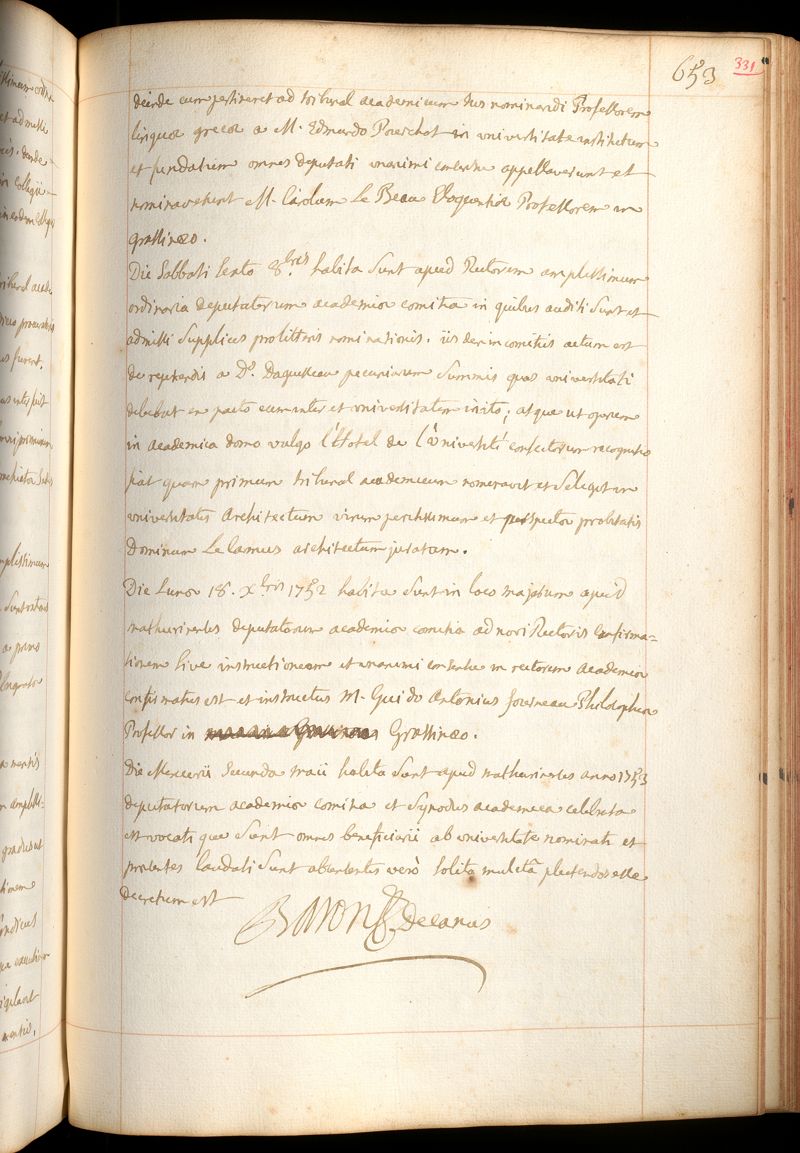 653 331
deinde cum pertineret ad tribunal academicum Jus nominandi Professorem
linguæ græcæ a M. Edmundo Pourchot in universitate institutum
et fundatum omnes deputati unanimi consensu appellaverunt et
nominaverunt M. Carolum Le Beau Eloquentiæ Professorem in
grassinæo.
Die Sabbati sexto 8.bris habita sunt apud Rectorem amplissimum
ordinaria deputatorum academiæ comitia in quibus auditi sunt et
admissi supplices pro litteris nominationis. iisdem in comitiis actum est
de repetendis a D.o Daguesseau pecuniarum summis quas universitati
debebat ex pacto eum inter et universitatem inito; atque ut operum
in academica domo vulgo l'Hotel de l'université confectorum recognitio
fiat quam primum tribunal academicum nominavit et selegit in
universitatis Architectum virum peritissimum et perspectæ probitatis
Dominum Le Camus architectum juratum.
Die Lunæ 18. Xbris 1752 habita sunt in loco majorum apud
mathurinenses deputatorum academiæ comitia ad novi Rectoris confirma=
tionem sive instructionem et unanimi consensu in rectorem academiæ
confirmatus est et instructus M. Guido Antonius Fourneau Philosophiæ
Professor in Grassinæo.
Die Mercurii secunda maii habita sunt apud mathurinenses anno 1753
deputatorum academiæ comitia et synodus academica celebrata
est vocati que sunt omnes beneficiarii ab universitate nominati et
præsentes laudati sunt absentes vero solita mulcta plectendos esse
decretum est
BARON Decanus